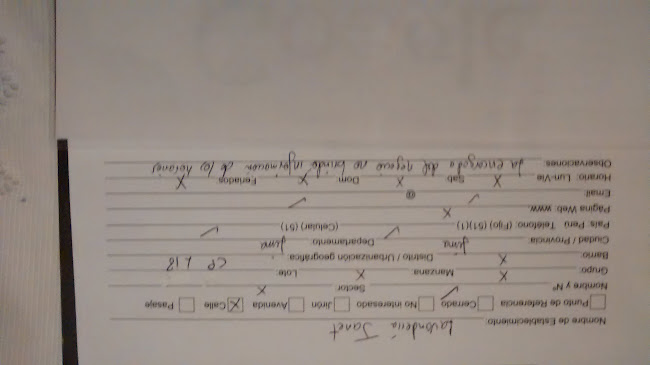 Nombre de Establecimiento: Lavandería Janet
Punto de Referencia Cerrado No interesado Jirón Avenida X Calle Pasaje
Nombre y Nº ✓ Sector X
Grupo: X Manzana X Lote:
Barrio: X Distrito / Urbanización geográfica CP L 18
Ciudad / Provincia: Lima Departamento: Lima
País Perú Teléfono: (Fijo) (51)(1) ✓ (Celular) (51) ✓
Página Web: www. X
Email: ✓ @ ✓
Horario: Lun-Vie X Sab X Dom X Feriados X
Observaciones: La encargada del negocio no brindo información de los horarios